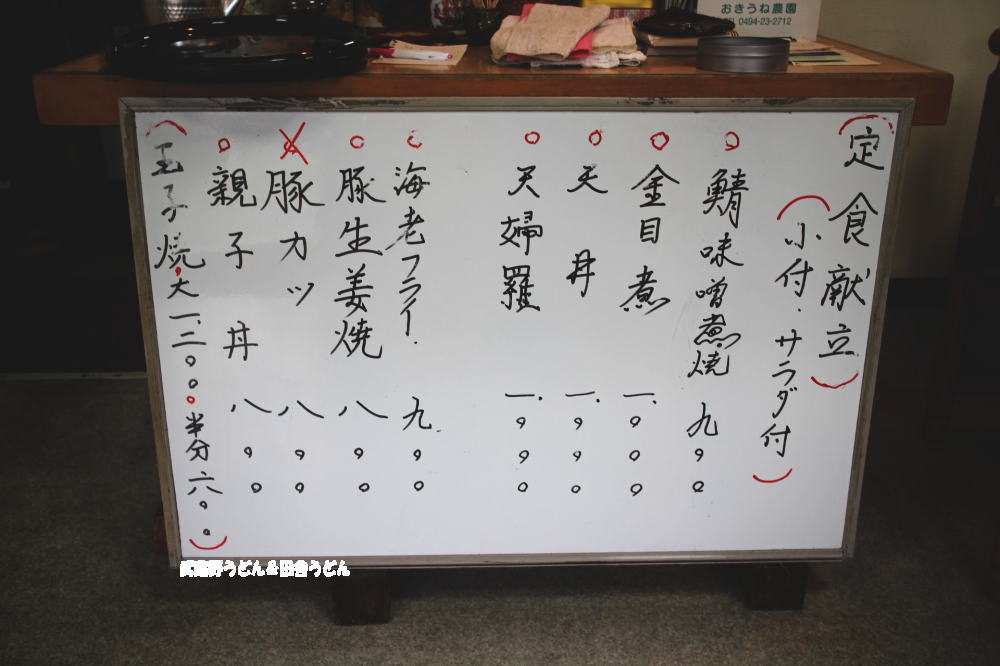 おきうね農園
TEL 0494-23-2712
(定食献立)
(小付・サラダ付)
○鯖味噌煮焼 九〇〇
○金目煮 一、〇〇〇
○天丼 一、〇〇〇
○天婦羅 一、〇〇〇
○海老フライ 九〇〇
○豚生姜焼 八〇〇
×豚カツ 八〇〇
○親子丼 八〇〇
(玉子焼、大一、二〇〇。半分六〇〇)
武蔵野うどん&田舎うどん